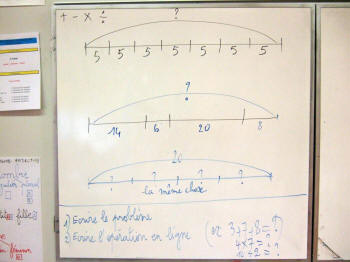 + - × ÷
?
5 5 5 5 5 5 5
?
14 6 20 8
20
? ? ? ? ?
la même chose
1) Ecrire le problème
2) Ecrire l'opération en ligne (ex 3+7+8=?
4×7=?
÷2=?)
ombre